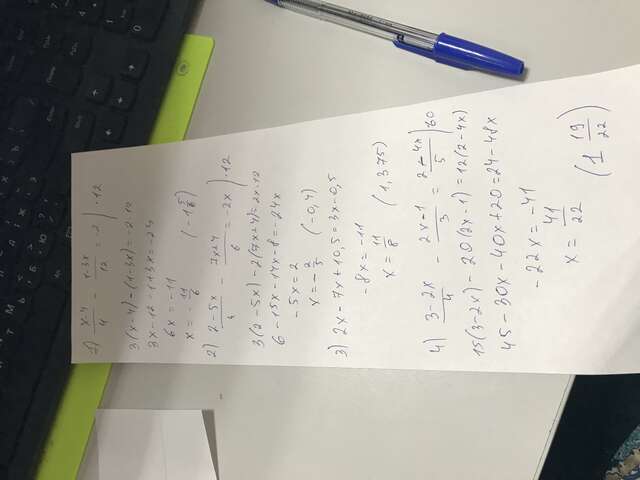 1) x-4/4 - 1+3x/12 = -2 ) ·12
3(x-4)-(1+3x)=-2·12
3x-12-1+3x=-24
6x=-11
x=-11/6 (-1 5/6)
2) 2-5x/4 - 7x+4/6 = -2x ) ·12
3(2-5x)-2(7x+4)=-2x·12
6-15x-14x-8=-24x
-5x=2
x=-2/5 (-0,4)
3) 2x-7x+10,5=3x-0,5
-8x=-11
x=11/8 (1,375)
4) 3-2x/4 - 2x-1/3 = 2-4x/5 ) 60
15(3-2x)-20(2x-1)=12(2-4x)
45-30x-40x+20=24-48x
-22x=-41
x=41/22 (1 19/22)